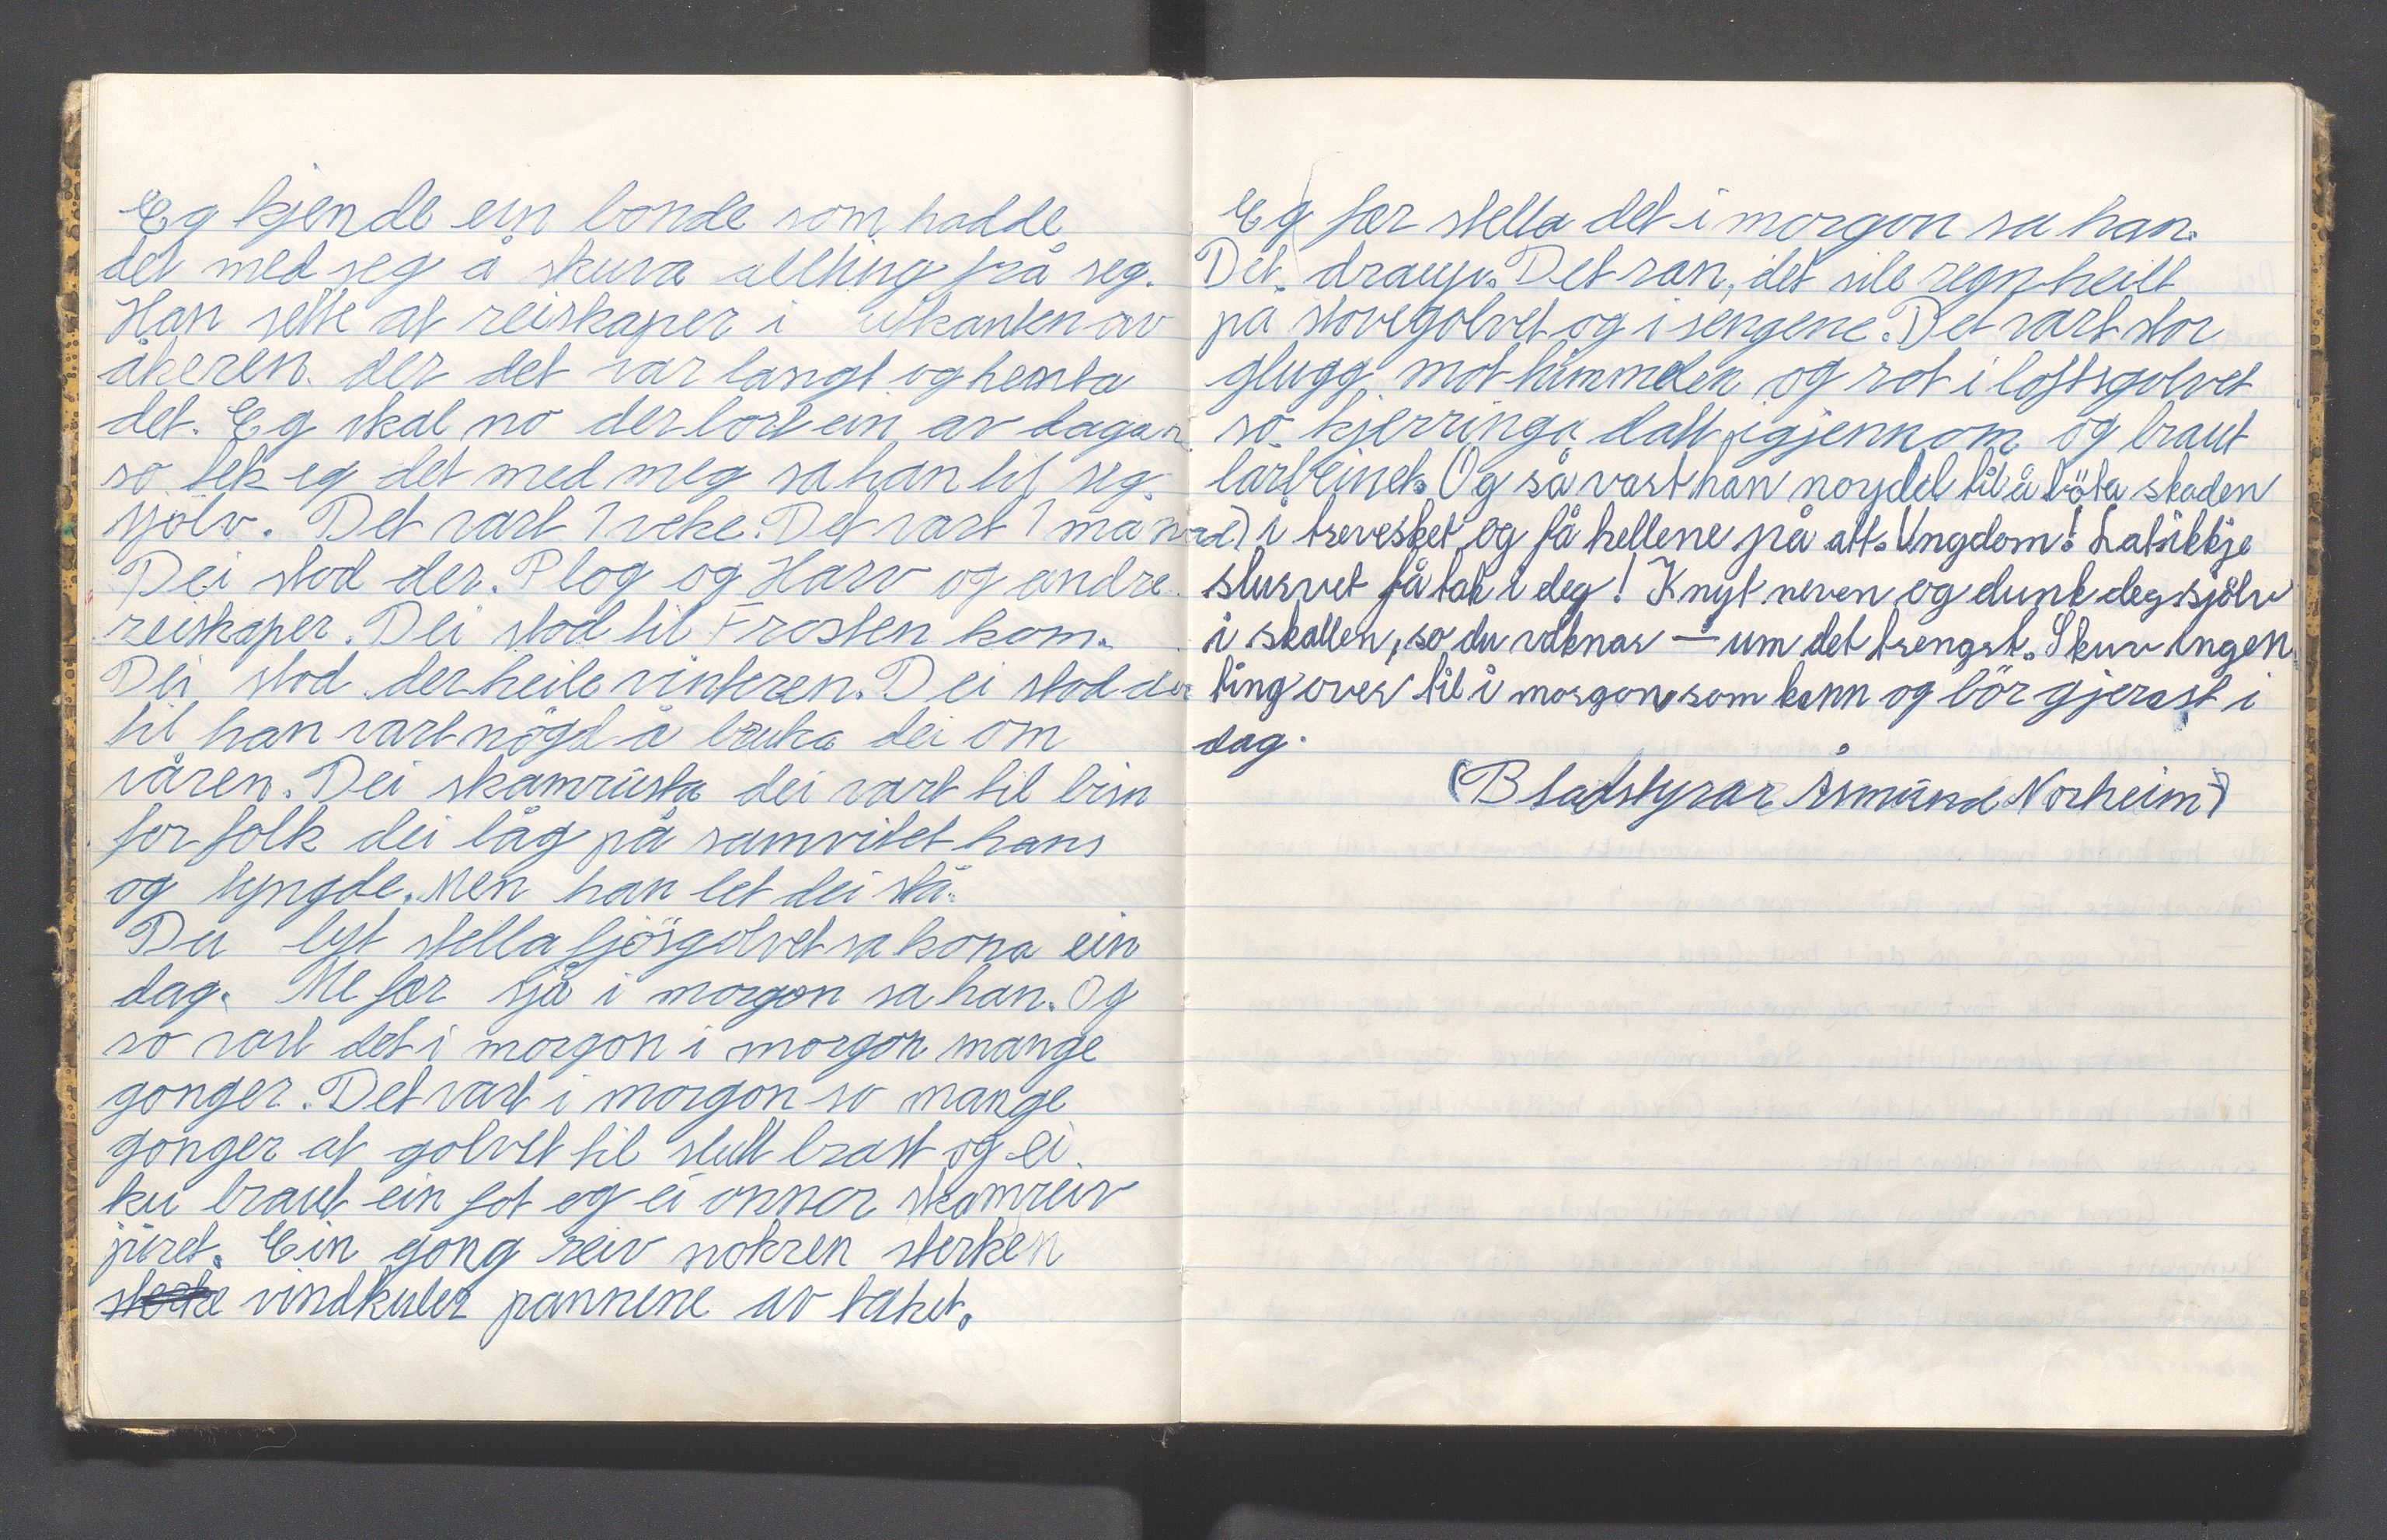 Eg kjende ein bonde som hadde
det med seg å skuva allting frå seg.
Han sette at reiskaper i utkanten av
åkeren. der det var langt og henta
det. Eg skal no der bort ein av dagan
so tek eg det med meg sa han til seg
sjölv. Det vart 1 veke. Det vart 1 månad
Dei stod der. Plog og Harv og andre
reiskaper. Dei stod til Frosten kom.
Dei stod der heile vinteren. Dei stod der
til han vart nögd å bruka dei om
våren. Dei skamrusta dei vart til bisn
for folk dei låg på samvitet hans
og tyngde. Men han let dei stå.
Du lyt stella fjösgolvet sa kona ein
dag. Me fær sjå i morgon sa han. Og
so vart det i morgon i morgon mange
gonger. Det vart i morgon so mange
gonger at golvet til slutt brast og ei
ku braut ein fot og ei onnor skamreiv
juret. Ein gong reiv nokren sterken
sterke vindkuler pannene av taket.
Eg fær stella det i morgon sa han.
Det draup. Det ran, det sile regn heilt
på stovegolvet og i sengene. Det vart stor
glugg mot himmelen og rot i loftsgolvet
so kjerringa datt igjennom og braut
lårbeinet. Og så vart han nøydd til å böta skaden
i trevesket og få hellene på att. Ungdom! Lat ikkje
slurvet få tak i deg! Knyt neven og dunk deg sjölv
i skallen, so du vaknar — um det trengst. Skuv ingen
ting over til i morgon, som kann og bör gjerast i
dag.
(Bladstyrar Åsmund Norheim)